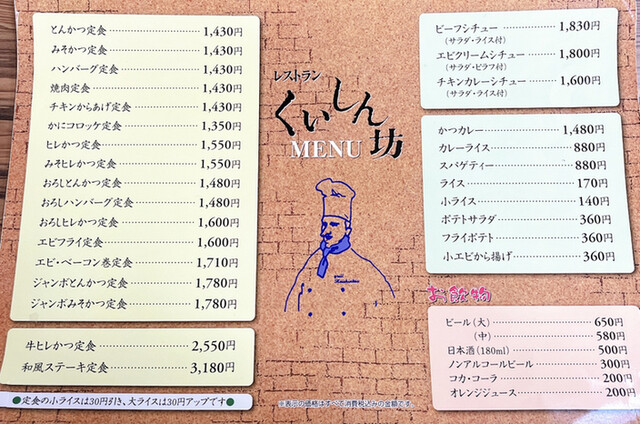 とんかつ定食 1,430円
みそかつ定食 1,430円
ハンバーグ定食 1,430円
焼肉定食 1,430円
チキンからあげ定食 1,430円
かにコロッケ定食 1,350円
ヒレかつ定食 1,550円
みそヒレかつ定食 1,550円
おろしとんかつ定食 1,480円
おろしハンバーグ定食 1,480円
おろしヒレかつ定食 1,600円
エビフライ定食 1,600円
エビ・ベーコン巻定食 1,710円
ジャンボとんかつ定食 1,780円
ジャンボみそかつ定食 1,780円
牛ヒレかつ定食 2,550円
和風ステーキ定食 3,180円
●定食の小ライスは30円引き、大ライスは30円アップです●
レストラン
くいしん坊
MENU
※表示の価格はすべて消費税込みの金額です
ビーフシチュー 1,830円
(サラダ・ライス付)
エビクリームシチュー 1,800円
(サラダ・ピラフ付)
チキンカレーシチュー 1,600円
(サラダ・ライス付)
かつカレー 1,480円
カレーライス 880円
スパゲティー 880円
ライス 170円
小ライス 140円
ポテトサラダ 360円
フライポテト 360円
小エビから揚げ 360円
お飲物
ビール(大) 650円
(中) 580円
日本酒(180ml) 500円
ノンアルコールビール 300円
コカ・コーラ 200円
オレンジジュース 200円